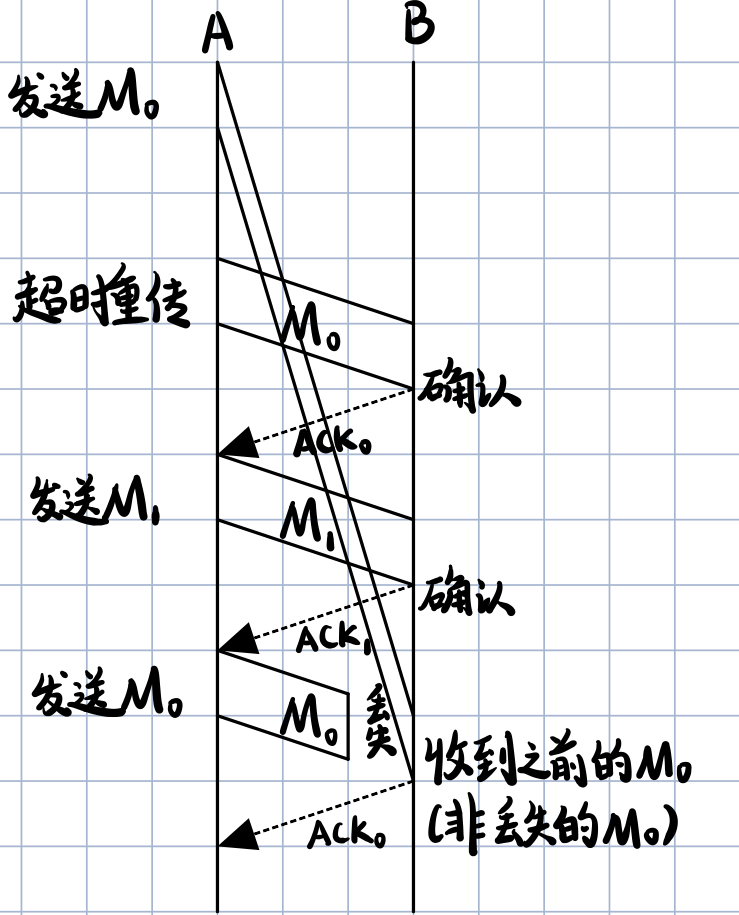 A
B
发送M₀
超时重传
M₀
确认
ACK₀
发送M₁
M₁
确认
ACK₁
发送M₀
M₀
丢失
收到之前的M₀
(非丢失的M₀)
ACK₀